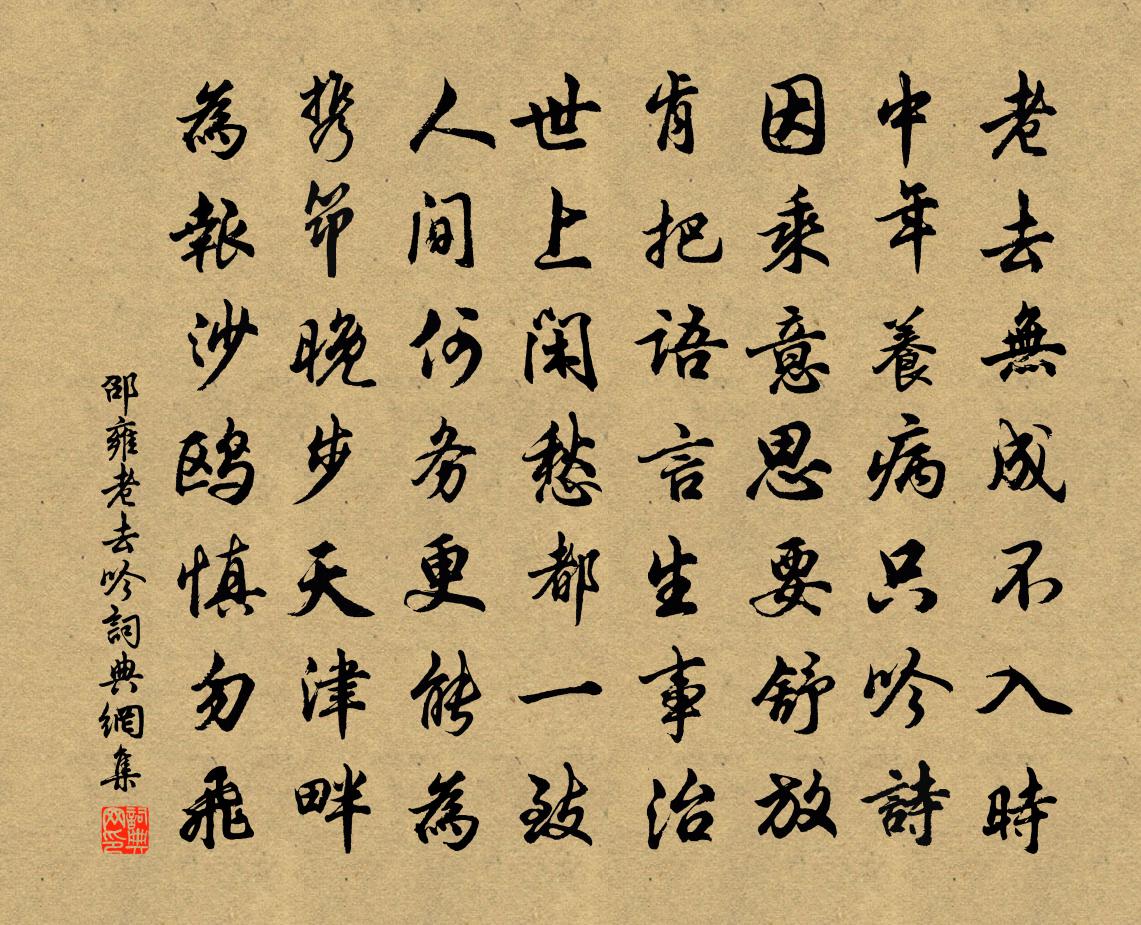 老去無成不入時
中年養病只吟詩
因乘意思要舒放
肯把語言生事治
世上闲愁都一致
人间何务更能為
携筇晚步天津畔
為報沙鸥慎勿飛
邵雍老去吟詞典網集
詞典网印